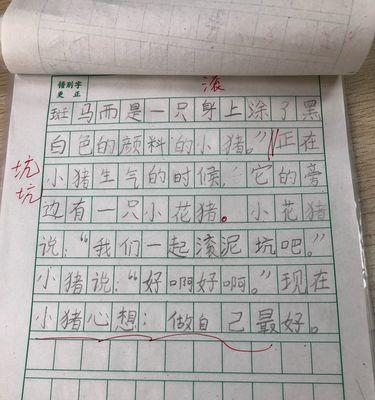 滚
错别字
更 正
斑马而是一只身上涂了黑
白色的颜料的小猪。”正在
坑
坑
小猪生气的时候，它的旁
边有一只小花猪。小花猪
说：“我们一起滚泥坑吧。”
小猪说：“好啊好啊。”现在
小猪心想：做自己最好。